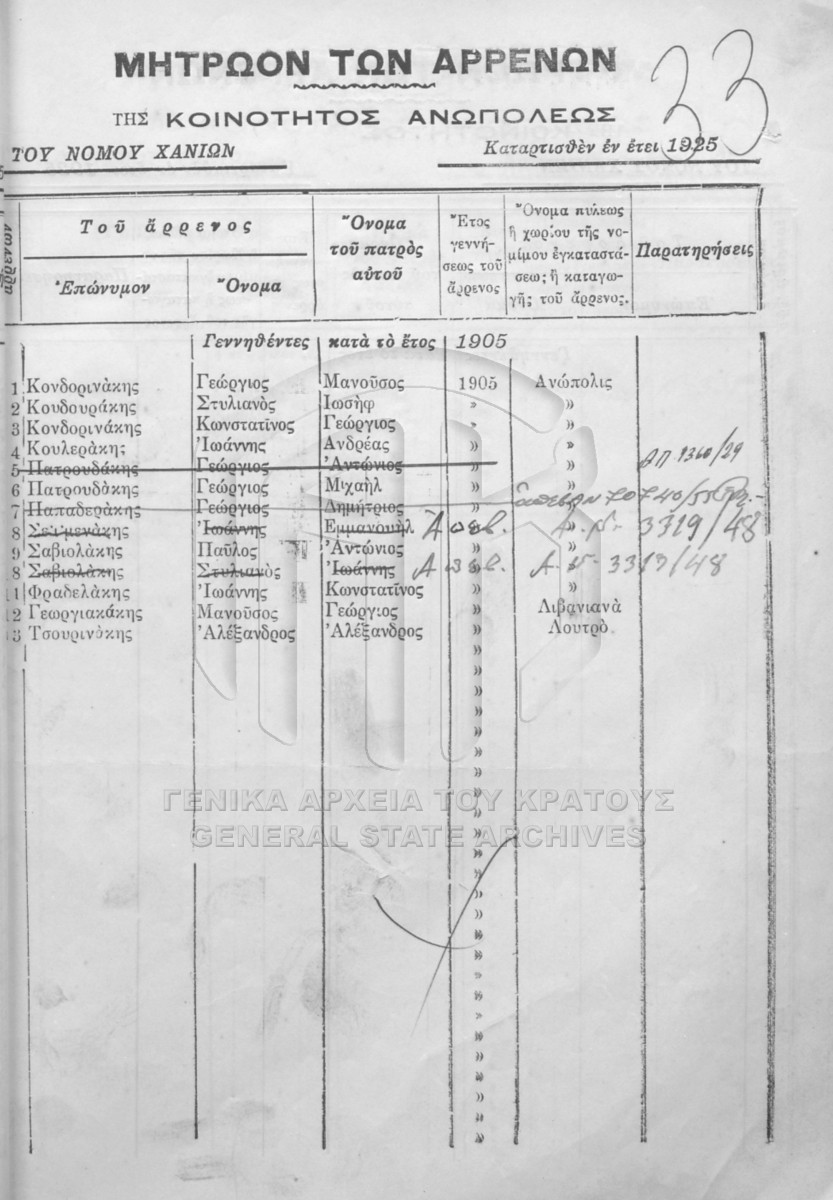 33
ΜΗΤΡΩΟΝ ΤΩΝ ΑΡΡΕΝΩΝ
ΤΗΣ ΚΟΙΝΟΤΗΤΟΣ ΑΝΩΠΟΛΕΩΣ
ΤΟΥ ΝΟΜΟΥ ΧΑΝΙΩΝ Καταρτισθὲν ἐν ἔτει 1925
Τοῦ ἄρρενος
Ἐπώνυμον Ὄνομα
Ὄνομα
τοῦ πατρὸς
αὐτοῦ
Ἔτος
γεννή-
σεως τοῦ
ἄρρενος
Ὄνομα πόλεως
ἢ χωρίου τῆς νο-
μίμου ἐγκαταστά-
σεως ἢ καταγω-
γῆς τοῦ ἄρρενος.
Παρατηρήσεις
Γεννηθέντες κατὰ τὸ ἔτος 1905
1 Κονδορινάκης Γεώργιος Μανοῦσος 1905 Ἀνώπολις
2 Κουδουράκης Στυλιανὸς Ἰωσὴφ » »
3 Κονδορινάκης Κωνστατῖνος Γεώργιος » »
4 Κουλεράκης Ἰωάννης Ἀνδρέας » »
5 Πατρουδάκης Γεώργιος Ἀντώνιος » » ΑΠ 1360/29
6 Πατρουδάκης Γεώργιος Μιχαὴλ » »
7 Παπαδεράκης Γεώργιος Δημήτριος »
8 Σειμενάκης Ἰωάννης Ἐμμανουὴλ Ἀπεβ. Α.Ν. 3319/48
9 Σαβιολάκης Παῦλος Ἀντώνιος » »
8 Σαβιολάκης Στυλιανὸς Ἰωάννης Ἀπεβ. Α.Ν. 3313/48
11 Φραδελάκης Ἰωάννης Κωνστατῖνος »
12 Γεωργιακάκης Μανοῦσος Γεώργιος » Λιβανιανὰ
13 Τσουρινάκης Ἀλέξανδρος Ἀλέξανδρος » Λουτρὸ
ΓΕΝΙΚΑ ΑΡΧΕΙΑ ΤΟΥ ΚΡΑΤΟΥΣ
GENERAL STATE ARCHIVES